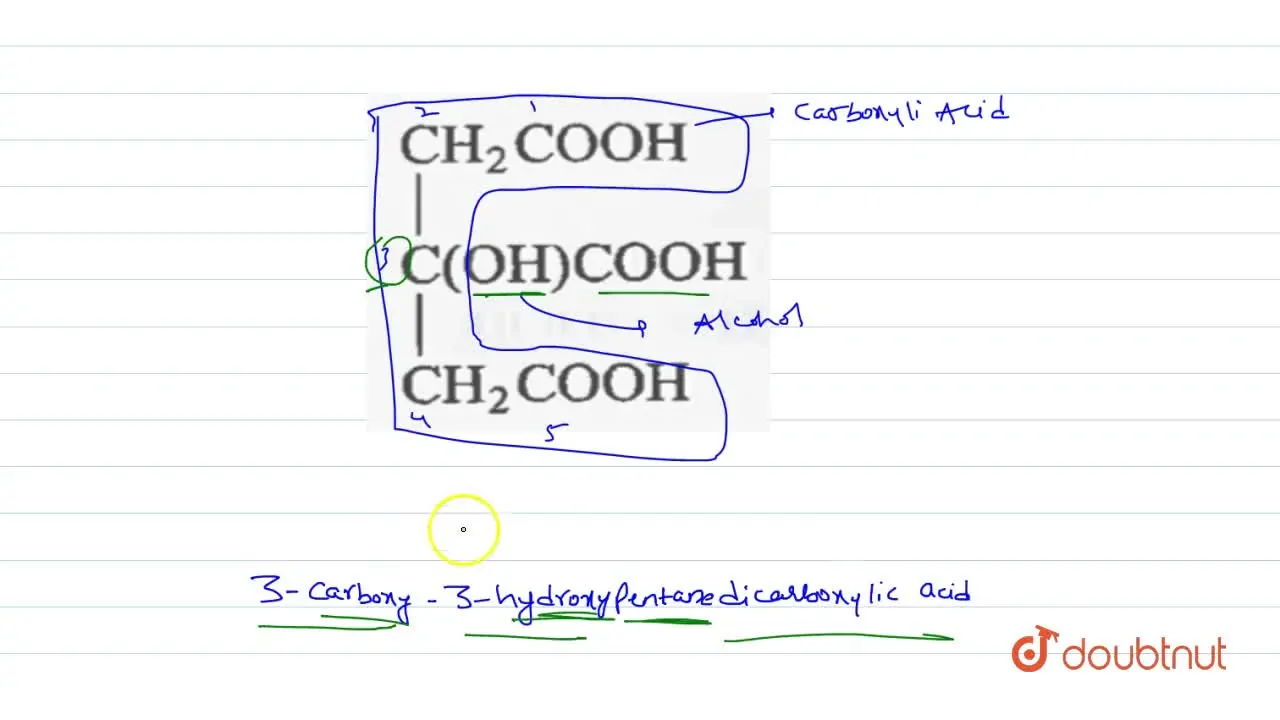 2 1
CH₂COOH → Carboxyli Acid
3 C(OH)COOH
Alcohol
CH₂COOH
4 5
3-Carboxy-3-hydroxyPentanedicarboxylic acid
doubtnut